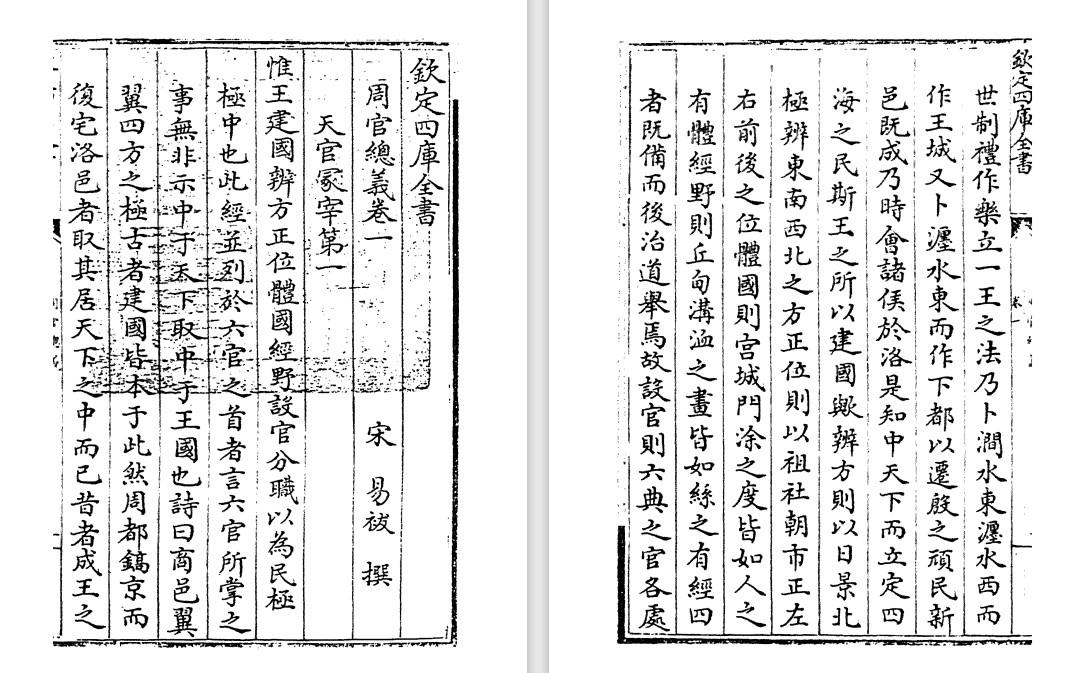 欽定四庫全書
周官總義卷一
宋 易祓 撰
天官冢宰第一
惟王建國辨方正位體國經野設官分職以為民極
極中也此經並列於六官之首者言六官所掌之
事無非示中于天下取中于王國也詩曰商邑翼
翼四方之極古者建國皆本于此然周都鎬京而
復宅洛邑者取其居天下之中而已昔者成王之
欽定四庫全書
卷一
世制禮作樂立一王之法乃卜澗水東瀍水西而
作王城又卜瀍水東而作下都以遷殷之頑民新
邑既成乃時會諸侯於洛是知中天下而立定四
海之民斯王之所以建國歟辨方則以日景北
極辨東南西北之方正位則以祖社朝市正左
右前後之位體國則宫城門涂之度皆如人之
有體經野則丘甸溝洫之畫皆如絲之有經四
者既備而後治道舉焉故設官則六典之官各處